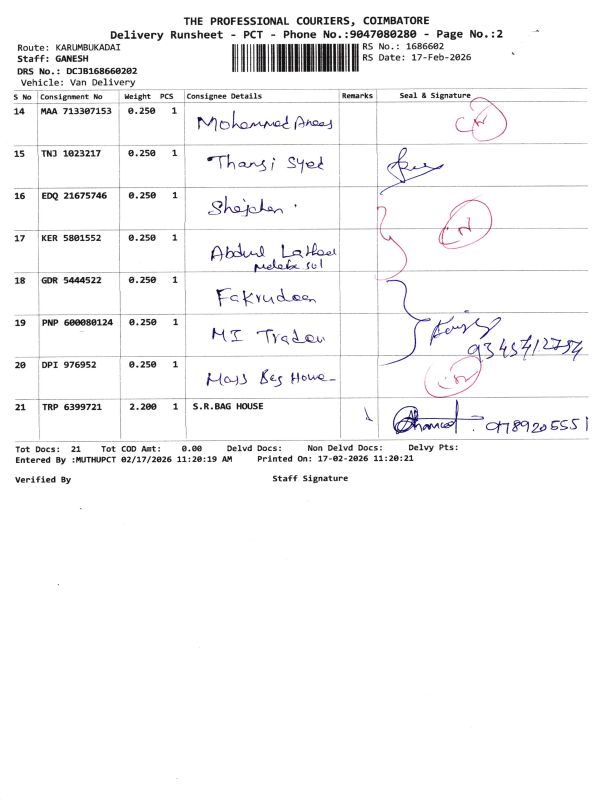 THE PROFESSIONAL COURIERS, COIMBATORE
Delivery Runsheet - PCT - Phone No.:9047080280 - Page No.:2
Route: KARUMBUKADAI
Staff: GANESH
DRS No.: DCJB168660202
Vehicle: Van Delivery
RS No.: 1686602
RS Date: 17-Feb-2026
S No Consignment No Weight PCS Consignee Details Remarks Seal & Signature
14 MAA 713307153 0.250 1 Mohammed Anees
15 TNJ 1023217 0.250 1 Thangi Syed
16 EDQ 21675746 0.250 1
17 KER 5801552 0.250 1 Abdul
18 GDR 5444522 0.250 1 Fakrudeen
19 PNP 600080124 0.250 1 MI Trader
9345412754
20 DPI 976952 0.250 1 Mass Bag House
21 TRP 6399721 2.200 1 S.R.BAG HOUSE 9789205551
Tot Docs: 21 Tot COD Amt: 0.00 Delvd Docs: Non Delvd Docs: Delvy Pts:
Entered By :MUTHUPCT 02/17/2026 11:20:19 AM Printed On: 17-02-2026 11:20:21
Verified By Staff Signature